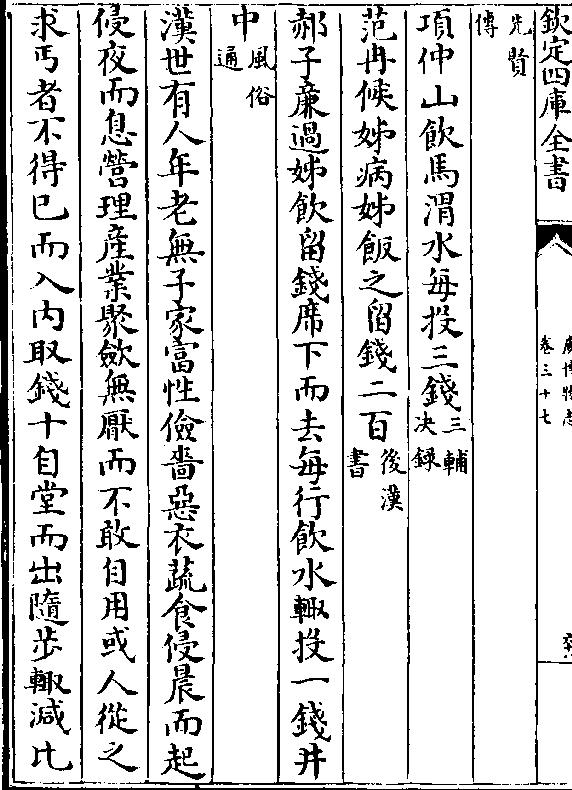 欽定四庫全書
廣博物志
卷三十七
先賢
傳
項仲山飲馬渭水每投三錢三輔
決録
范冉候姊病姊飯之留錢二百後漢
書
郝子廉過姊飲留錢席下而去每行飲水輙投一錢井
中風俗
通
漢世有人年老無子家富性儉嗇惡衣蔬食侵晨而起
侵夜而息營理産業聚斂無厭而不敢自用或人從之
求丐者不得已而入内取錢十自堂而出隨步輙減比